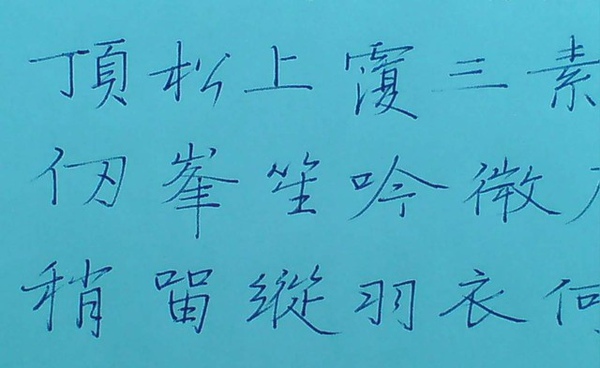 頂松上霞三素
仞峯笙吟微
稍留縱羽衣何